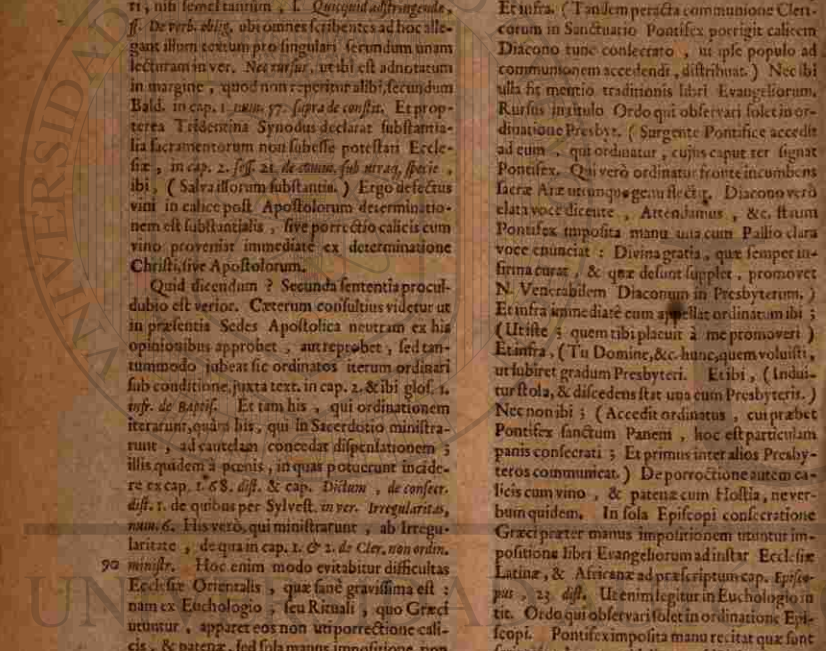 ri, nisi semel tantum, l. Quicquid adstringendæ,
ff. De verb. oblig. ubi omnes scribentes ad hoc alle-
gant illum textum pro singulari secundum unam
lecturam in ver. Nec rursus, ut ibi est adnotatum
in margine, quod non reperitur alibi, secundum
Bald. in cap. 1. num. 57. supra de constit. Et prop-
terea Tridentina Synodus declarat substantia-
lia sacramentorum non subesse potestati Eccle-
siæ, in cap. 2. sess. 21. de commu. sub utraq; specie,
ibi, (Salva illorum substantia.) Ergo defectus
vini in calice post Apostolorum determinatio-
nem est substantialis, sive porrectio calicis cum
vino proveniat immediatè ex determinatione
Christi, sive Apostolorum.
Quid dicendum? Secunda sententia procul-
dubio est verior. Cæterum consultius videtur ut
in præsentia Sedes Apostolica neutram ex his
opinionibus approbet, aut reprobet, sed tan-
tummodo jubeat sic ordinatos iterum ordinari
sub conditione, juxta text. in cap. 2. & ibi glos. 1.
infr. de Baptis. Et tam his, qui ordinationem
iterarunt, quàm his, qui in Sacerdotio ministra-
runt, ad cautelam concedat dispensationem;
illis quidem à pœnis, in quas potuerunt incide-
re ex cap. 1. 68. dist. & cap. Dictum, de consecr.
dist. 1. de quibus per Sylvest. in ver. Irregularitas,
num. 6. His verò, qui ministrarunt, ab Irregu-
laritate, de qua in cap. 1. & 2. de Cler. non ordin.
90 ministr. Hoc enim modo evitabitur difficultas
Ecclesiæ Orientalis, quæ sanè gravissima est:
nam ex Euchologio, seu Rituali, quo Græci
utuntur, apparet eos non uti porrectione cali-
cis, & patenæ, sed sola manus impositione, non
Et infra. (Tandem peracta communione Cleri-
corum in Sanctuario Pontifex porrigit calicem
Diacono tunc consecrato, ut ipse populo ad
communionem accedendi, distribuat.) Nec ibi
ulla fit mentio traditionis libri Evangeliorum.
Rursus in titulo Ordo qui observari solet in or-
dinatione Presbyt. (Surgente Pontifice accedit
ad eum, qui ordinatur, cujus caput ter signat
Pontifex. Qui verò ordinatur fronte incumbens
sacræ Aræ utrunque genu flectit. Diacono verò
elata voce dicente, Attendamus, &c. statim
Pontifex imposita manu una cum Pallio clara
voce enunciat: Divina gratia, quæ semper in-
firma curat, & quæ desunt supplet, promovet
N. Venerabilem Diaconum in Presbyterum.)
Et infra immediatè eum appellat ordinatum ibi;
(Ut iste; quem tibi placuit à me promoveri)
Et infra, (Tu Domine, &c. hunc, quem voluisti,
ut subiret gradum Presbyteri. Et ibi, (Indui-
tur stola, & discedens stat una cum Presbyteris.)
Nec non ibi; (Accedit ordinatus, cui præbet
Pontifex sanctum Panem, hoc est particulam
panis consecrati; Et primus inter alios Presby-
teros communicat.) De porrectione autem ca-
licis cum vino, & patenæ cum Hostia, ne ver-
bum quidem. In sola Episcopi consecratione
Græci præter manus impositionem utuntur im-
positione libri Evangeliorum ad instar Ecclesiæ
Latinæ, & Africanæ ad præscriptum cap. Episco-
pus, 23. dist. Ut enim legitur in Euchologio in
tit. Ordo qui observari solet in ordinatione Epi-
scopi. Pontifex imposita manu recitat quæ sunt